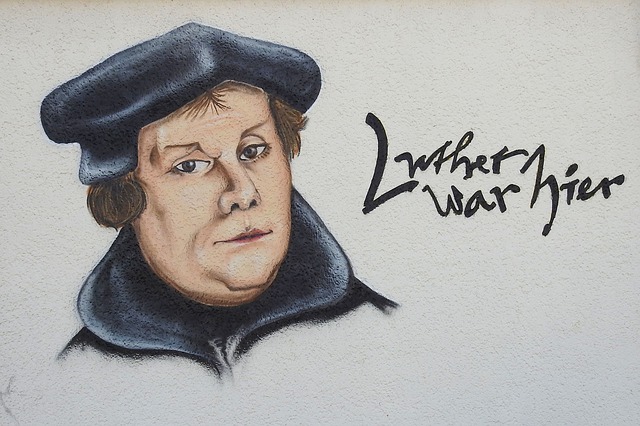 Luther
war hier